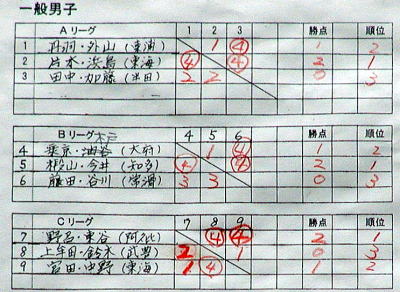 一般男子
Aリーグ 1 2 3 勝点 順位
1 丹羽・外山 (東浦) 1 ④ 1 2
2 片本・浜島 (東海) ④ ④ 2 1
3 田中・加藤 (半田) 2 2 0 3
Bリーグ 4 5 6 勝点 順位
4 ・油谷 (大府) 1 ④ 1 2
5 椴山・今井 (知多) ④ ④ 2 1
6 藤田・谷川 (常滑) 3 3 0 3
Cリーグ 7 8 9 勝点 順位
7 野呂・東谷 (阿久比) ④ ④ 2 1
8 上牟田・鈴木 (武豊) 2 1 0 3
9 宮田・中野 (東海) 1 ④ 1 2